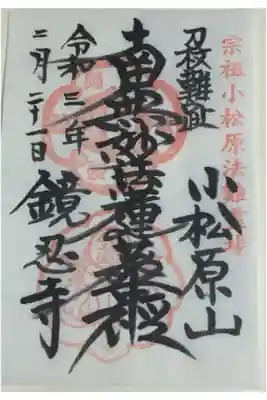 宗祖小松原法難霊場
刃段難跡
小松原山
南無妙法蓮華経
令和三年
二月二十一日
鏡忍寺